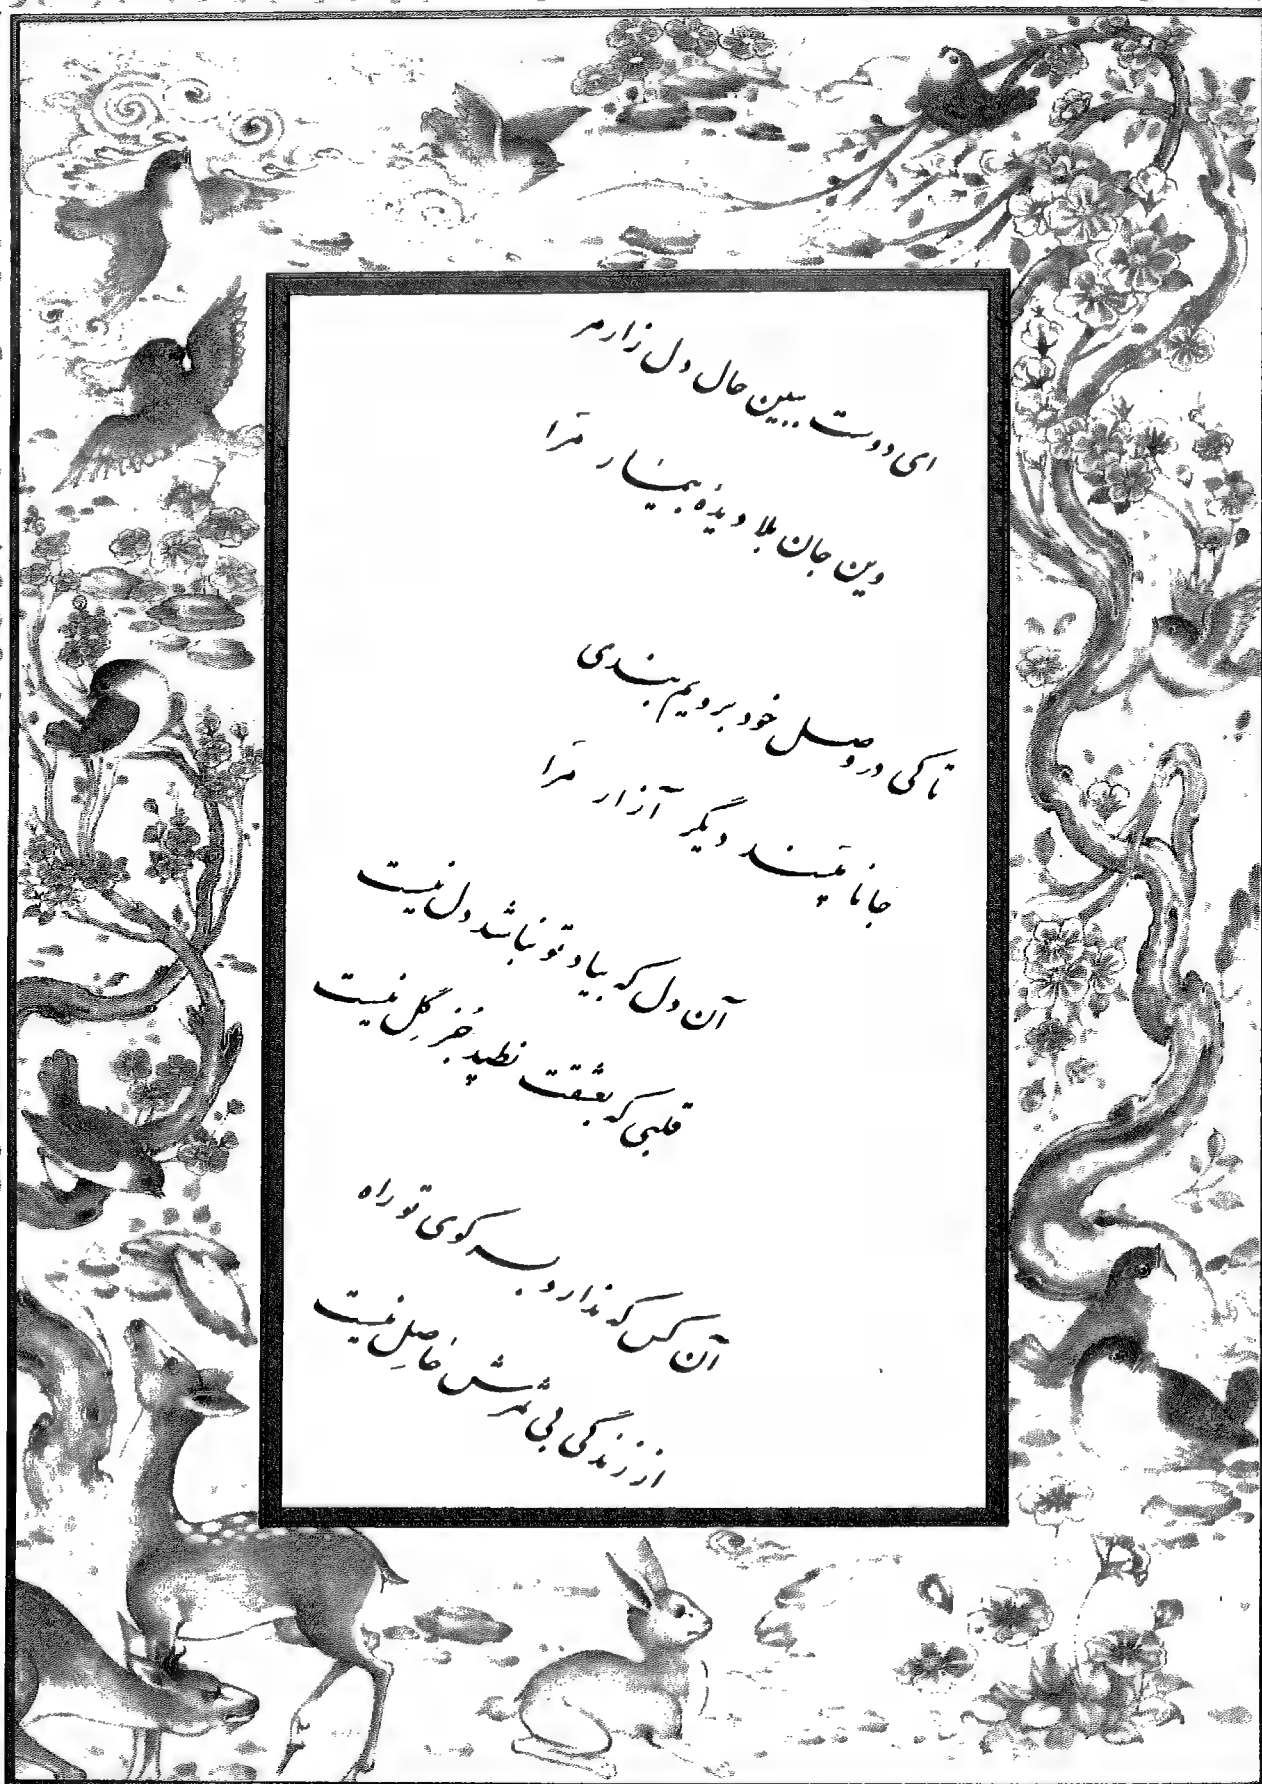 ای دوست ببین حال دل زار مر
وین جان بلا دیده بیمار مرا
تا کی در وصل خود برویم بندی
جانا مپسند دیگر آزار مرا
آن دل که بیاد تو نباشد دل نیست
قلبی که بعشقت نطپد جز گل نیست
آن کس که ندارد بسر کوی تو راه
از زندگی بی ثمرش حاصل نیست